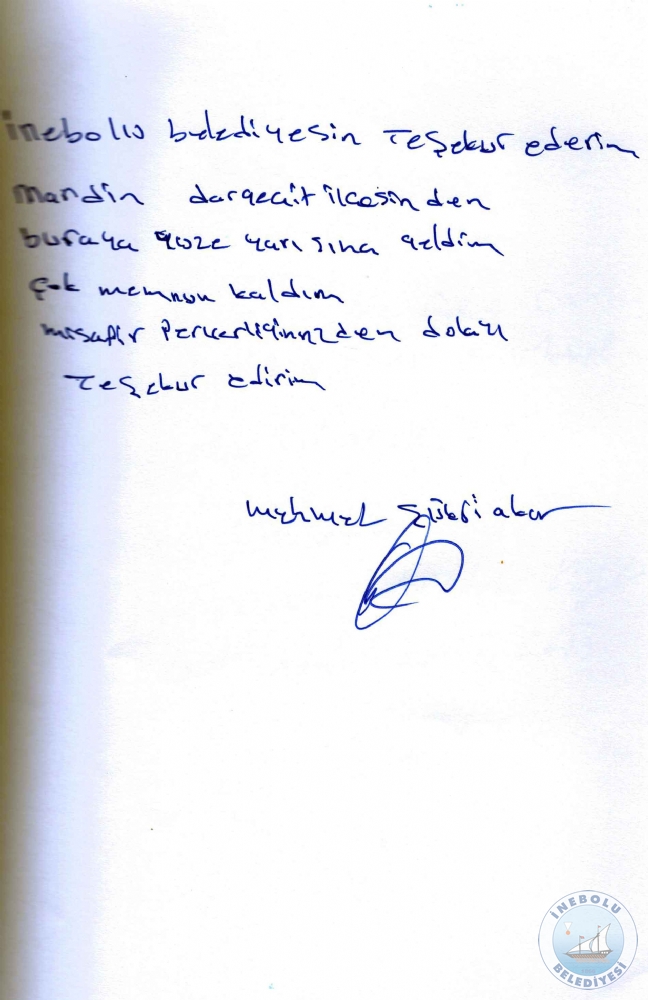 inebolu belediyesin Teşekur ederim
mardin dargecit ilcesinden
buraya goze yarısına geldim
çok memnun kaldım
misafir perverliğinizden dolayı
Teşekur edirim
mehmet Şükri
İNEBOLU
BELEDİYESİ